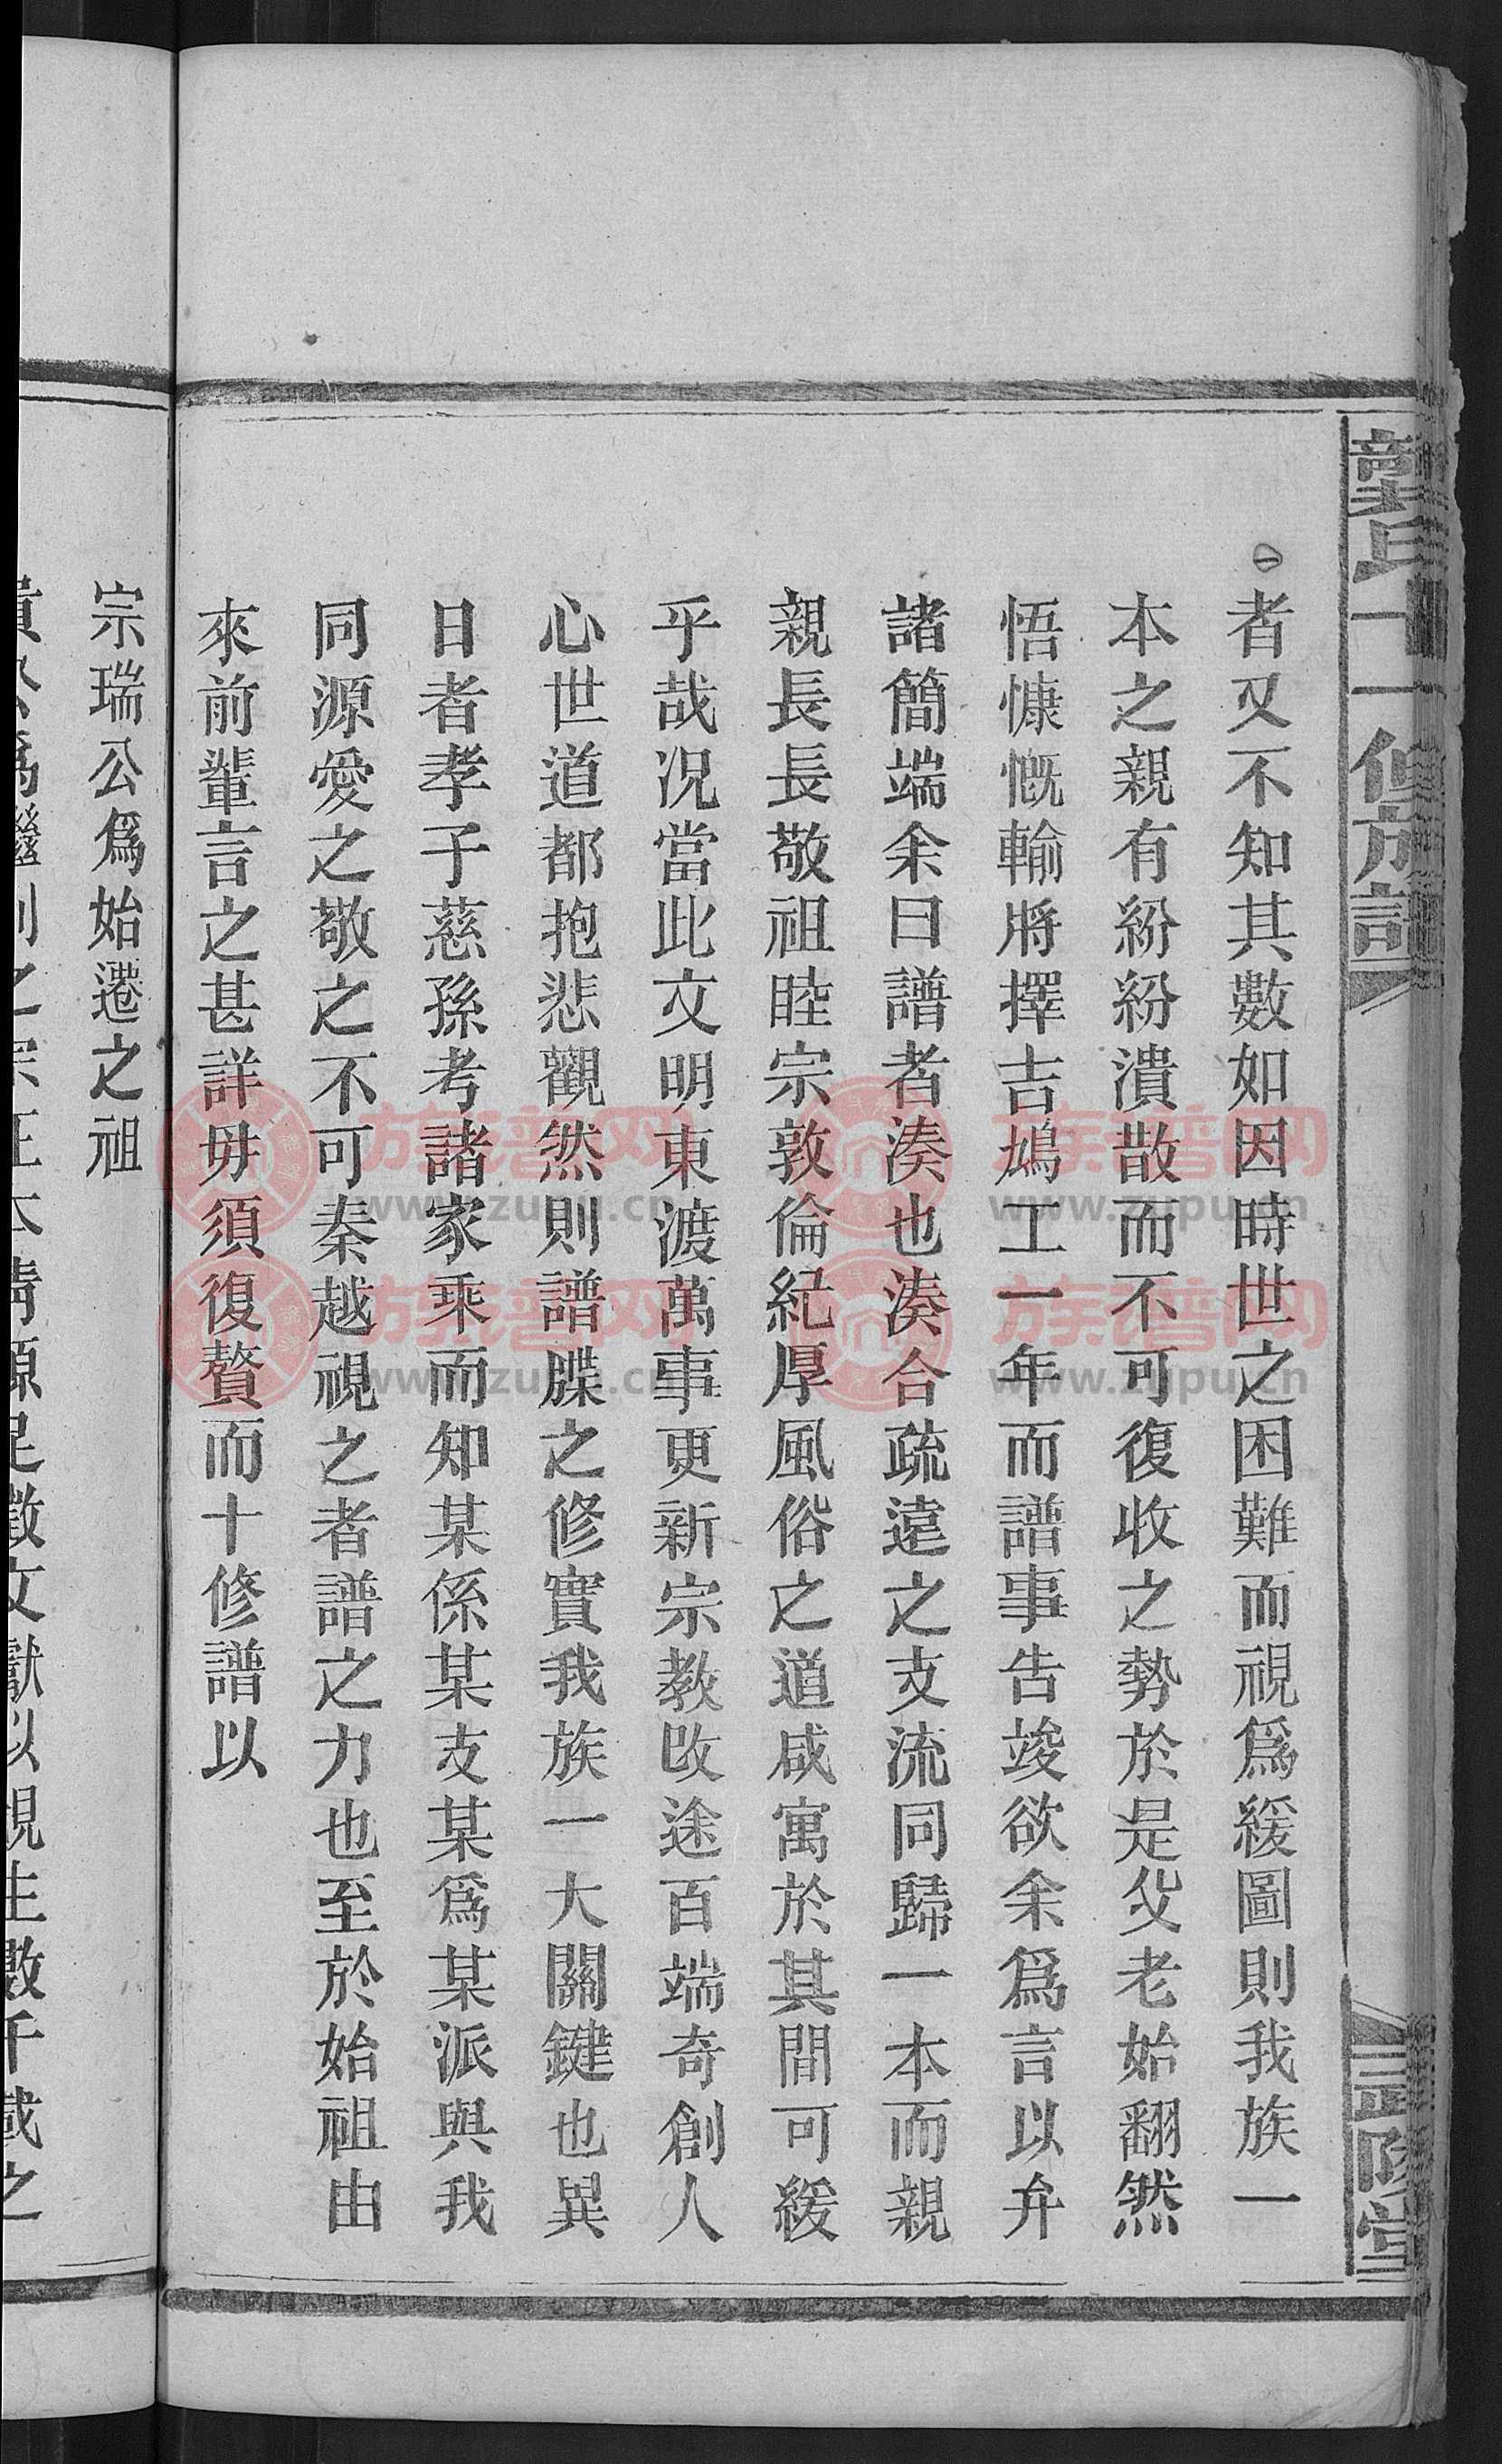 者又不知其數如因時世之困難而視爲緩圖則我族一
本之親有紛紛潰散而不可復收之勢於是父老始翻然
悟慷慨輸將擇吉鳩工一年而譜事告竣欲余爲言以弁
諸簡端余曰譜者湊也湊合疏遠之支流同歸一本而親
親長長敬祖睦宗敦倫紀厚風俗之道咸寓於其間可緩
乎哉况當此文明東渡萬事更新宗教改途百端奇創人
心世道都抱悲觀然則譜牒之修實我族一大關鍵也異
日者孝子慈孫考諸家乘而知某係某支某爲某派與我
同源愛之敬之不可秦越視之者譜之力也至於始祖由
來前輩言之甚詳毋須復贅而十修譜以
宗瑞公爲始遷之祖
族谱网
www.zupu.cn
族谱网
www.zupu.cn
族谱网
www.zupu.cn
族谱网
www.zupu.cn